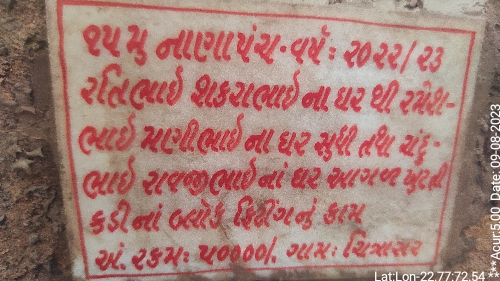 ૧૫ મુ નાણાપંચ - વર્ષ : ૨૦૨૨/૨૩
રતિભાઈ શકરાભાઈ ના ઘર થી રમેશ-
ભાઈ મણીભાઈ ના ઘર સુધી તથા ચંદુ-
ભાઈ રાવજીભાઈ નાં ઘર આગળ ખુટતી
કડી નાં બ્લોક ફિટીંગ નું કામ
અં. રકમ : ૫૦૦૦૦/. ગામ : ચિત્રાસર
Lat:Lon-22.77:72.54
***Acur:5.00 Date: 09-08-2023